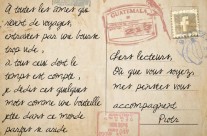 A toutes les âmes qui
rêvent de voyages,
entravées par une bourse
trop vide,
à tous ceux dont le
temps est compté,
je dédie ces quelques
mots comme une bouteille
jetée dans ce monde
parfois si aride
GUATEMALA
Chers lecteurs,
Où que vous soyez,
mes pensées vous
accompagnent
Piotr